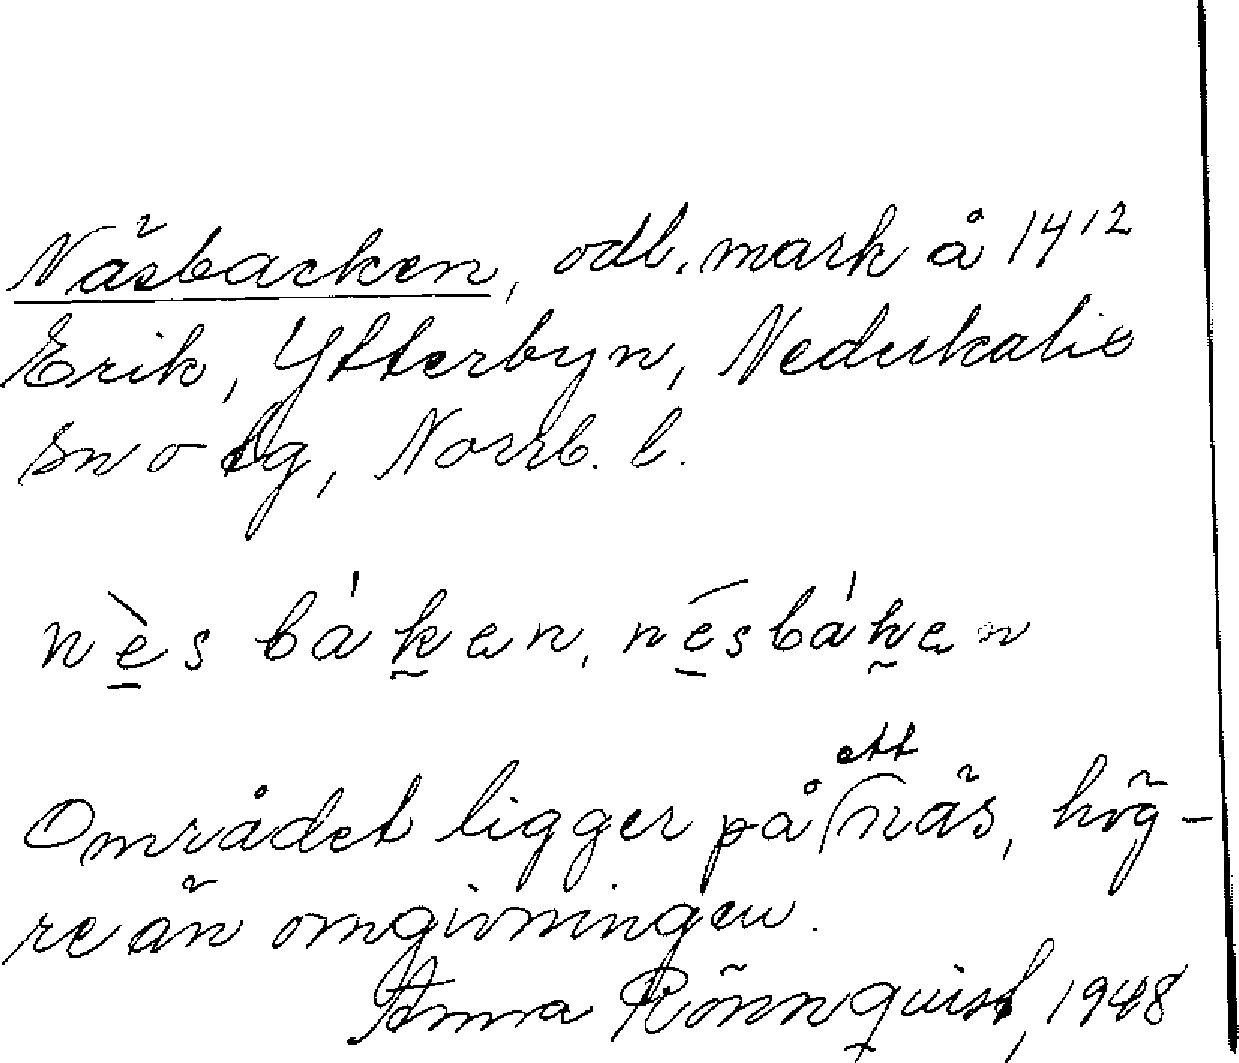 Näsbacken, odl. mark å 14¹²
Erik, Ytterbyn, Nederkalix
sn o tg, Norrb. l.
nès báken, nésbáken
Området ligger på ett näs, hög-
re än omgivningen.
Anna Rönnquist, 1948